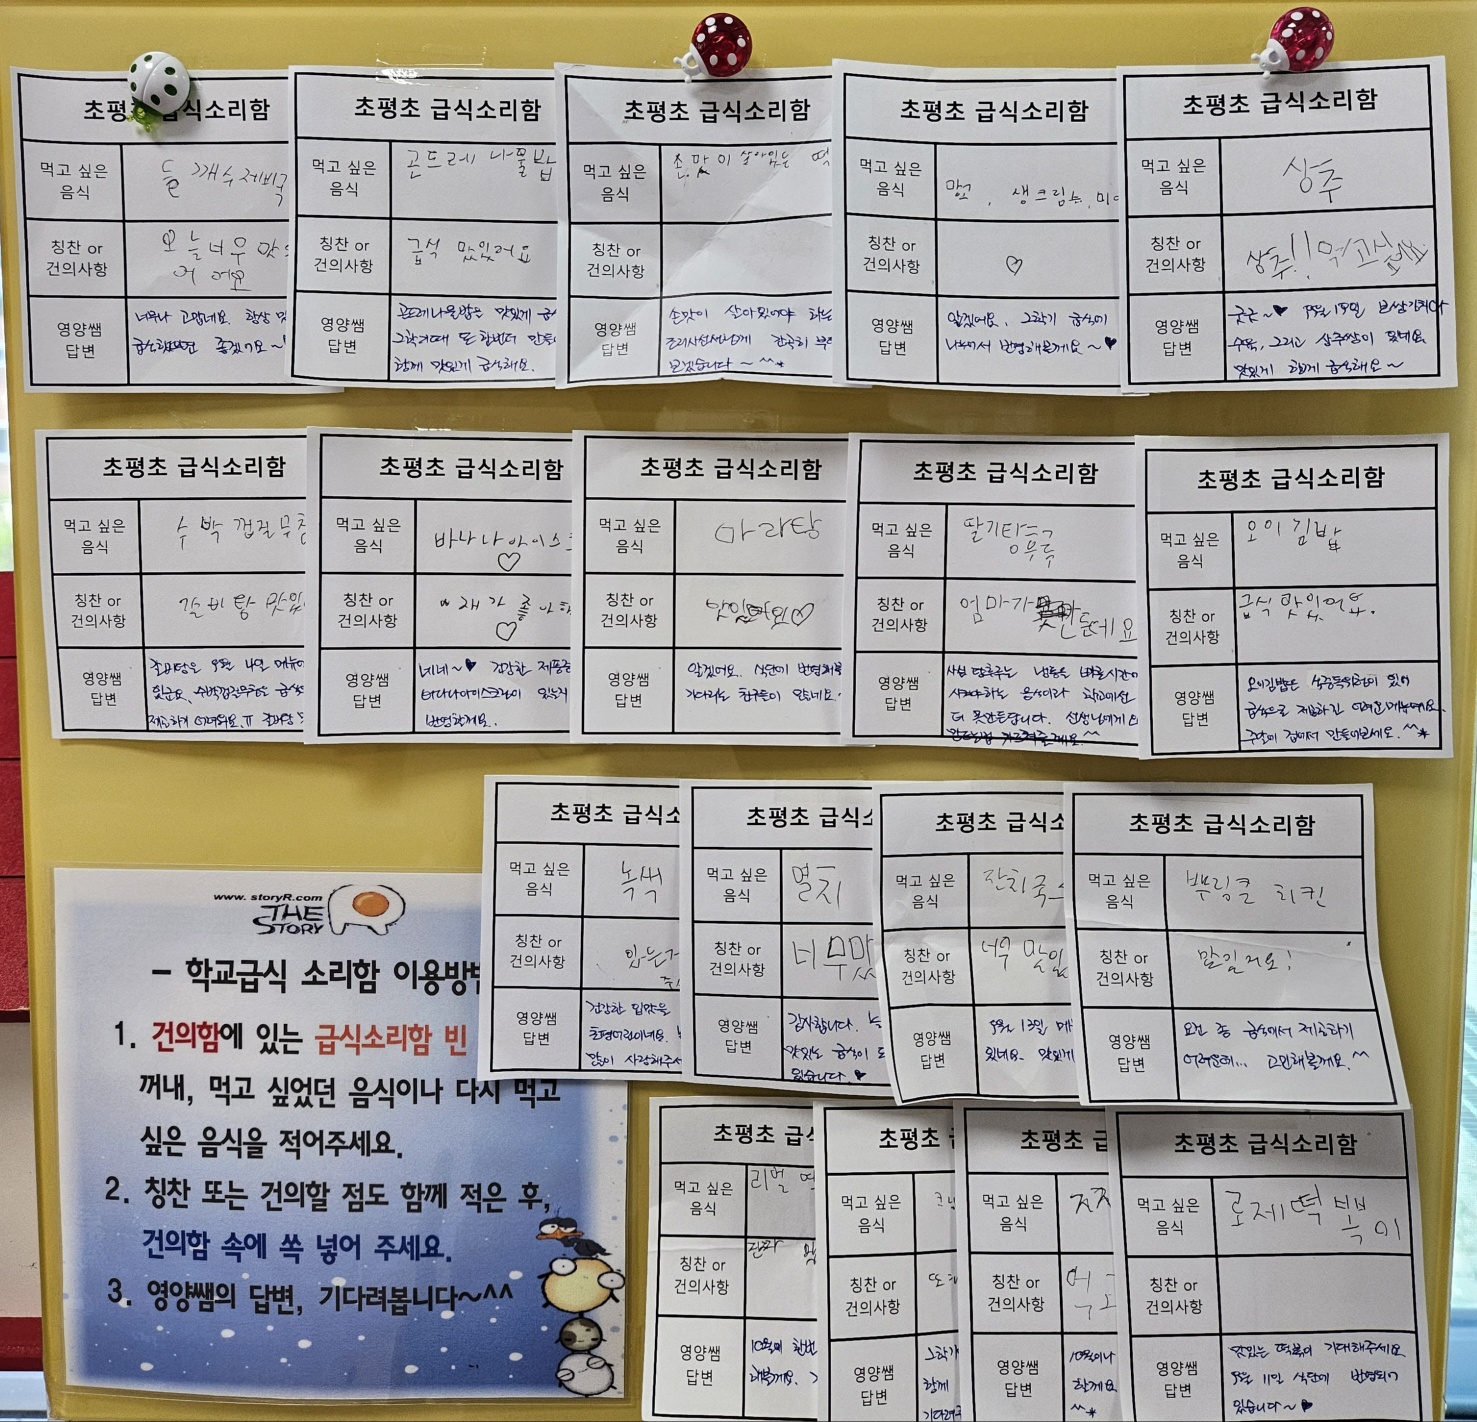 초평초 급식소리함
먹고 싶은
음식
들깨수제비국
칭찬 or
건의사항
오늘너무 맛
어요
영양쌤
답변
너무나 고맙네요. 항상 맛
급식했으면 좋겠어요~
초평초 급식소리함
먹고 싶은
음식
곤드레 나물밥
칭찬 or
건의사항
급식 맛있어요
영양쌤
답변
곤드레나물밥은 맛있게 급
2학기때 또 한번더 만들
함께 맛있게 급식해요.
초평초 급식소리함
먹고 싶은
음식
손맛이 살아있는 떡
칭찬 or
건의사항
영양쌤
답변
손맛이 살아있어야 하는
조리사선생님께 간곡히 부
보겠습니다~^^*
초평초 급식소리함
먹고 싶은
음식
생크림
칭찬 or
건의사항
♡
영양쌤
답변
알겠어요. 2학기 급식에
나눠서 반영해볼게요~♥
초평초 급식소리함
먹고 싶은
음식
상추
칭찬 or
건의사항
상추!! 먹고싶어요
영양쌤
답변
굿굿~♥ 9월 19일
수육, 그리고 상추쌈이 있네요
맛있게 함께 급식해요~
초평초 급식소리함
먹고 싶은
음식
수박 껍질무침
칭찬 or
건의사항
갈비탕 맛있
영양쌤
답변
갈비탕은 9월 4일 메뉴에
있군요. 수박껍질무침은 급식
제공하기 어려워요.ㅠ 갈비탕
초평초 급식소리함
먹고 싶은
음식
바나나아이스
♡
칭찬 or
건의사항
내가 좋아
♡
영양쌤
답변
네네~♥ 건강한 제품중
바나나아이스크림이 있는지
반영할게요.
초평초 급식소리함
먹고 싶은
음식
마라탕
칭찬 or
건의사항
맛있어요♡
영양쌤
답변
알겠어요. 식단이 반영되
기다리는 친구들이 많네요.
초평초 급식소리함
먹고 싶은
음식
딸기탕후루
칭찬 or
건의사항
엄마가 만든데요
영양쌤
답변
사실 탕후루는 남들은 빠른시간에
사먹하는 음식이라 학교에선
더 못만든답니다. 선생님에게
만드는법 가르쳐줄게요.^^
초평초 급식소리함
먹고 싶은
음식
오이김밥
칭찬 or
건의사항
급식 맛있어요.
영양쌤
답변
오이김밥은 식중독위험이 있어
급식으로 제공하긴 어려운메뉴네요.
주말에 집에서 만들어보세요.^^*
초평초 급식소
먹고 싶은
음식
녹색
칭찬 or
건의사항
영양쌤
답변
건강한 입맛을
초평어린이네요.
많이 사랑해주세
초평초 급식소
먹고 싶은
음식
멸치
칭찬 or
건의사항
너무맛
영양쌤
답변
감사합니다.
맛있는 급식이
있습니다.♥
초평초 급식소
먹고 싶은
음식
잔치국수
칭찬 or
건의사항
너무 맛있
영양쌤
답변
9월 13일 메
있네요. 맛있게
초평초 급식소리함
먹고 싶은
음식
뿌링클 치킨
칭찬 or
건의사항
맛길거요!
영양쌤
답변
요건 좀 급식에서 제공하기
어려운데... 고민해볼게요.^^
www.storyR.com
THE
STORY
- 학교급식 소리함 이용방법
1. 건의함에 있는 급식소리함 빈
꺼내, 먹고 싶었던 음식이나 다시 먹고
싶은 음식을 적어주세요.
2. 칭찬 또는 건의할 점도 함께 적은 후,
건의함 속에 쏙 넣어 주세요.
3. 영양쌤의 답변, 기다려봅니다~^^
초평초 급식
먹고 싶은
음식
리얼
칭찬 or
건의사항
진짜
영양쌤
답변
10월에 한번
해볼게요.
초평초
먹고 싶은
음식
칭찬 or
건의사항
또
영양쌤
답변
2학기
함께
기다려
초평초 급
먹고 싶은
음식
칭찬 or
건의사항
영양쌤
답변
10월이나
할게요
^^*
초평초 급식소리함
먹고 싶은
음식
로제떡볶이
칭찬 or
건의사항
영양쌤
답변
맛있는 떡볶이 기대해주세요
9월 11일 식단에 반영되어
있습니다~♥